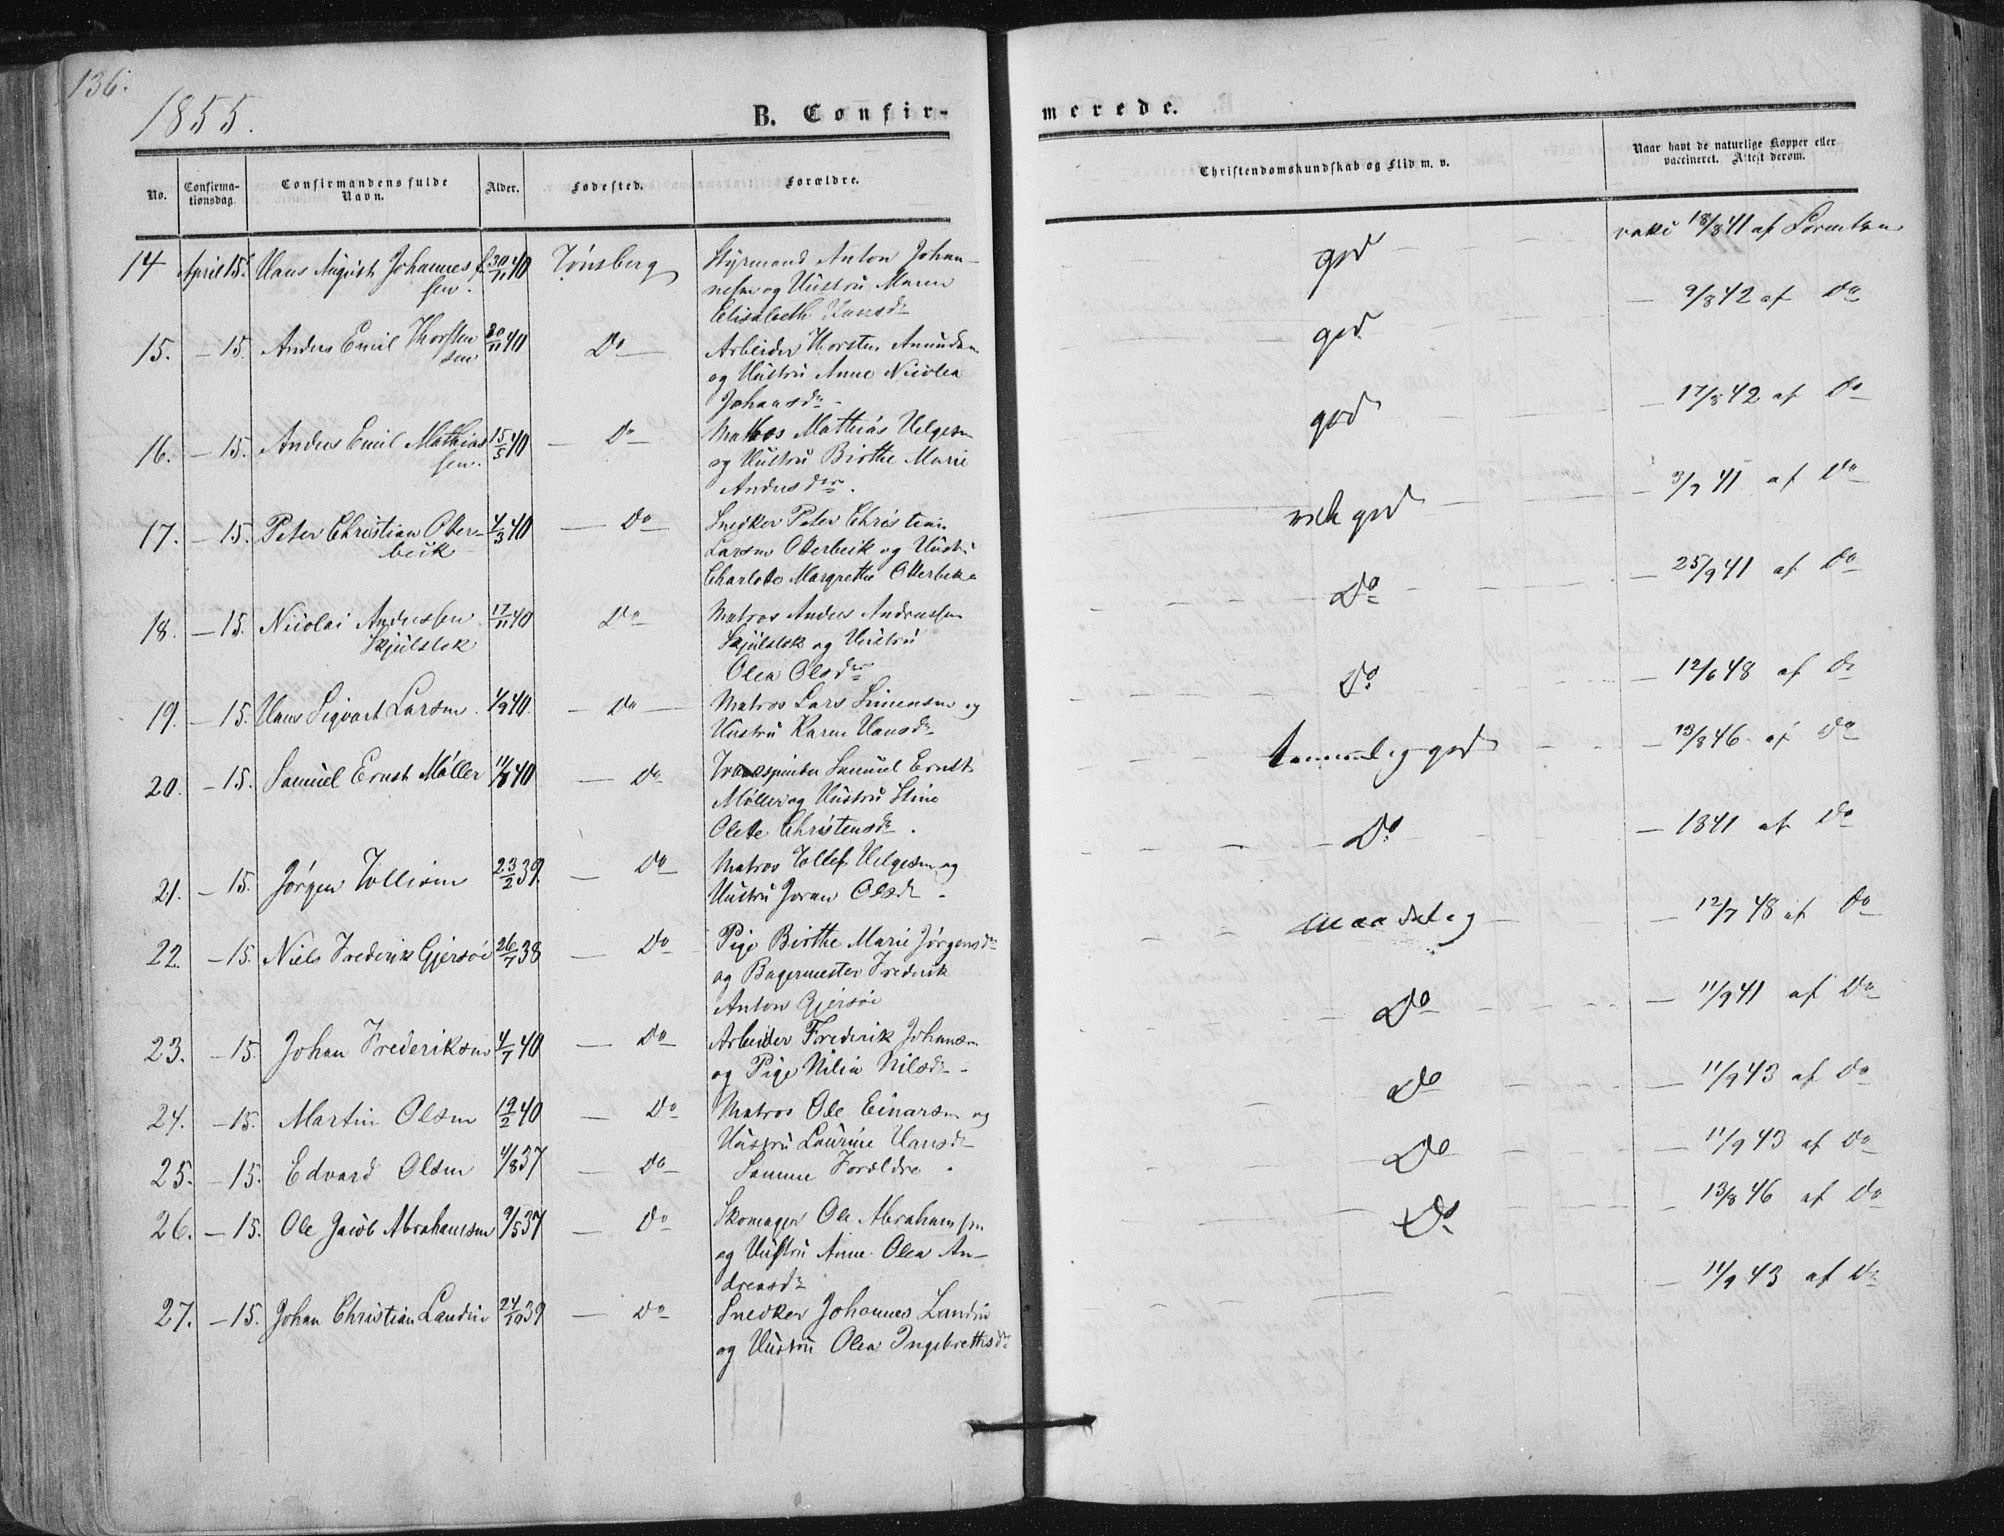 136.
1855.
B. Confir-
merede.
No.
Confirma-
tionsdag.
Confirmandens fulde
Navn.
Alder.
Fødested.
Forældre.
Christendomskundskab og Flid m. v.
Naar havt de naturlige Kopper eller
vaccineret. Attest derom.
14 April 15. Hans August Johannes 30/11 40 Tønsberg Styrmand Anton Johan-
sen. nesen og Hustru Maren
Elisabeth Hansdr
god
vakc 18/8 41 af Lorentzen
15. - 15. Anders Emil Thorsten 30/11 40 Do Arbeider Thorsten Amundsen
sen og Hustru Anne Nicolea
Johansdr
god
9/8 42 af Do
16. - 15. Anders Emil Mathias 15/5 40 - Do Matros Mathias Helgesen
sen. og Hustru Birthe Marie
Andersdtr.
god
17/8 42 af Do
17. - 15. Peter Christian Otter- 4/3 40 - Do Snedker Peter Christian
beik Larsen Otterbeik og Hustru
Charlotte Margrethe Otterbek
god
3/7 41 af Do
18. - 15. Nicolai Andersen 17/11 40 Do Matros Anders Andersen
og Hustru
Olea Olsdtr
Do
- 25/9 41 af Do
19. - 15. Hans Sigvart Larsen 1/9 40. - Do - Matros Lars Simensen og
Hustru Karen Hansdr
Do
12/6 48 af Do
20. - 15. Samuel Ernst Møller 40 - Do Samuel Ernst
Møller og Hustru Stine
Olete Christensdr.
temmelig god
- 13/8 46 af Do
21. - 15. Jørgen Tollvsen 23/2 39. - Do Matros Tollef Helgesen og
Hustru Joran Olsdr
Do
- 1841 af Do
22. - 15. Niels Frederik Gjersøi 26/7 38 - Do Pige Birthe Marie Jørgensdr
og Bagermester Frederik
Anton Gjersøi
Maadelig
- 12/7 48 af Do
23. - 15. Johan Frederiksen 4/7 40 - Do Arbeider Frederik Johansen
og Pige Nilia Nilsdr
Do
- 11/9 41 af Do
24. - 15. Martin Olsen 19/2 40 - Do Matros Ole Einarsen og
Hustru Laurine Hansdr
Do
- 11/9 43 af Do
25. - 15. Edvard Olsen 4/8 37 - Do Samme Forældre
Do
- 11/9 43 af Do
26. - 15. Ole Jacob Abrahamsen 9/5 37 - Do Skomager Ole Abrahamsen
og Hustru Anne Olea An-
dreasdr
Do
- 13/8 46 af Do
27. - 15. Johan Christian Landin 24/10 39 - Do Snedker Johannes Landin
og Hustru Olea Ingebrethsdr
- 11/9 43 af Do